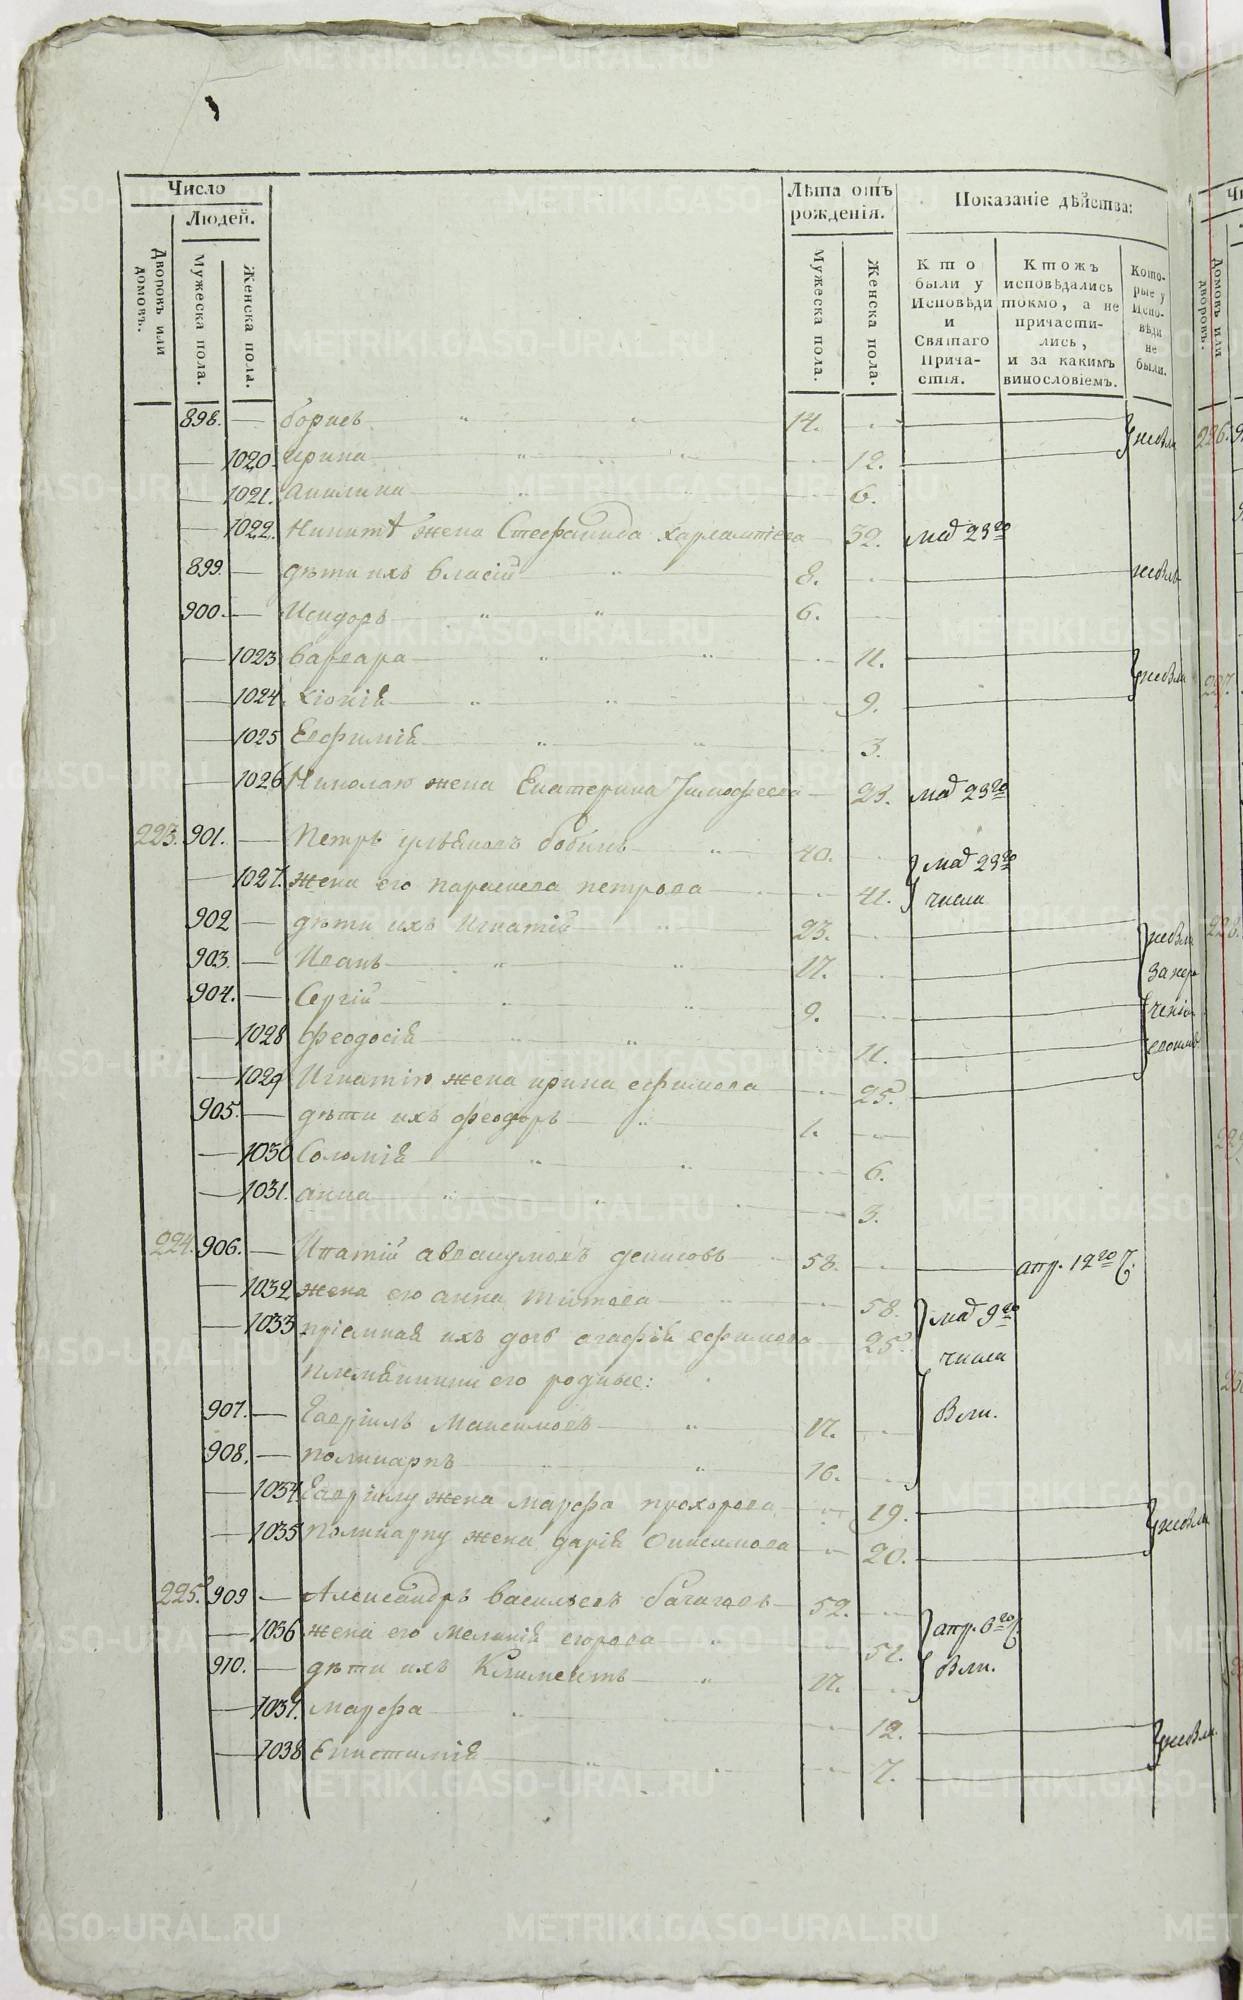 Число
Людей.
Дворовъ или домовъ.
Мужеска пола.
Женска пола.
Лѣта отъ рожденія.
Мужеска пола.
Женска пола.
Показаніе дѣйства:
Кто были у Исповѣди и Святаго Прича-стія.
Ктожъ исповѣдались токмо, а не причасти-лись, и за какимъ винословіемъ.
Кото-рые у Испо-вѣди не были.
898. Борисъ 14.
1020. Ирина 12.
1021. Акилина 6.
1022. Никитѣ жена Стефанида Харлампіева 32. маія 23го
899. дѣти ихъ Власій 8.
900. Исидоръ 6.
1023 Варвара 11.
1024 Хіонія 9.
1025 Евфимія 3.
1026 Николаю жена Екатерина Тимофеева 23. маія 23го
223. 901. Петръ Ульяновъ Бобинъ 40. маія 23го
1027. жена его Параскева Петрова 41. числа
902 дѣти ихъ Игнатій 23.
903. Иванъ 17.
904. Сергій 9.
1028 Феодосія 11.
1029 Игнатію жена Ирина Ефимова 25.
905. дѣти ихъ Феодоръ 1.
1030 Соломія 6.
1031. Анна 3.
224. 906. Ипатій Аввакумовъ Денисовъ 58. апр. 12го
1032 жена его Анна Титова 58. маія 9го
1033 пріемная ихъ дочь Агафія Ефимова 25. числа
племянники его родные:
907. Гавріилъ Максимовъ 17.
908. Поликарпъ 16.
1034. Гавріилу жена Марфа Прохорова 19.
1035 Поликарпу жена Дарія Онисимова 20.
225. 909 Александръ Васильевъ 52. апр. 6го
1036 жена его Меланія Егорова 51.
910. дѣти ихъ Климентъ 17.
1037. Марфа 12.
1038 Епистимія 7.
METRIKI.GASO-URAL.RU